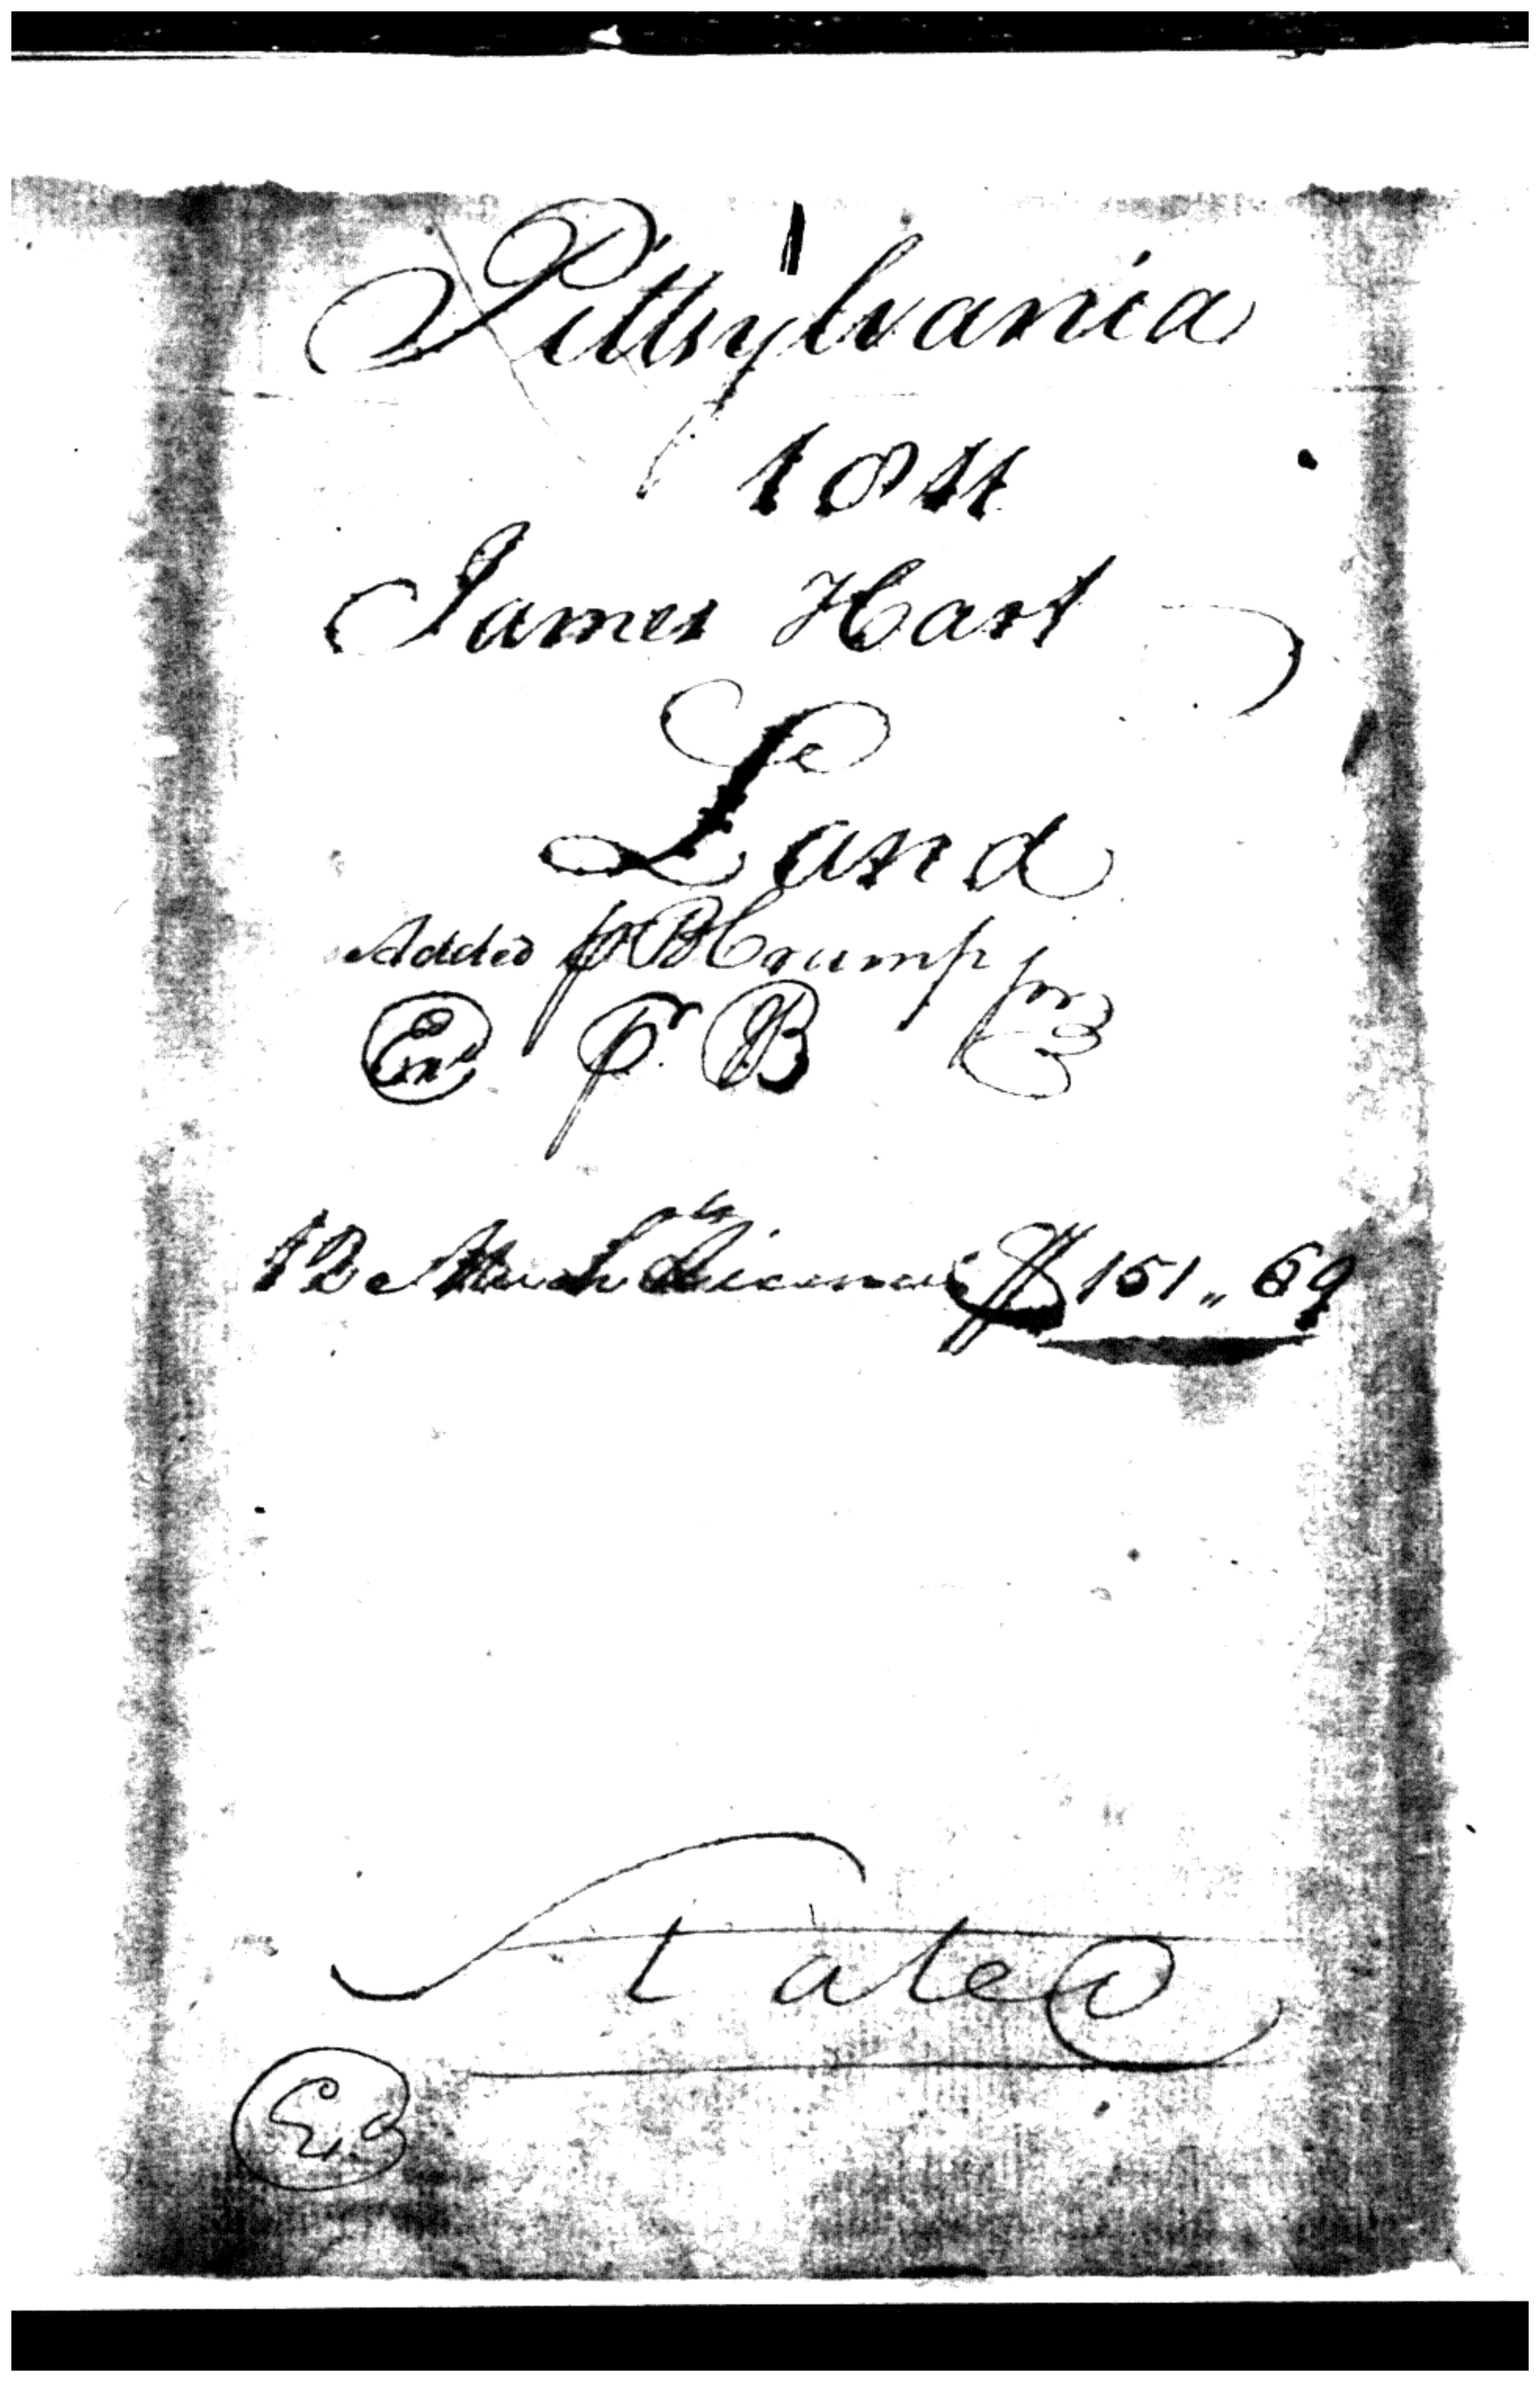 Pittsylvania
1811
James Hart
Land
Added p B Crump jnr
Exd pr B
12 Merch Licences $ 151 " 69
Stated
Ex